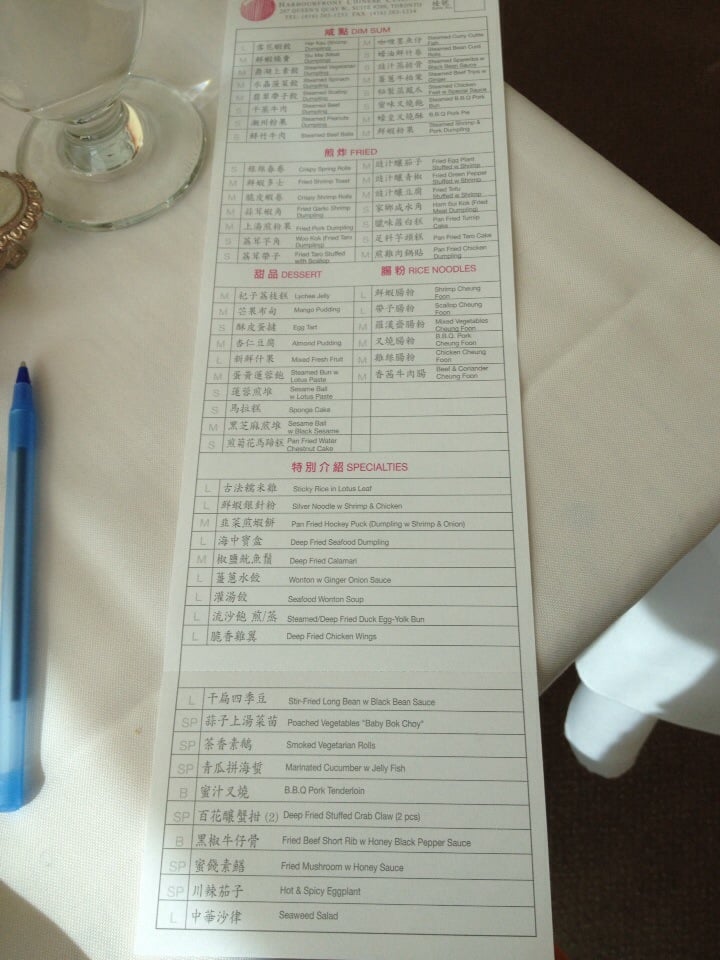 HARBOURFRONT CHINESE
207 QUEEN'S QUAY W., SUITE #200, TORONTO
TEL: (416) 203-1233 FAX: (416) 203-1234
鹹點 DIM SUM
L Har Kaw (Shrimp Dumpling)
M 鮮蝦燒賣
M Steamed Vegetarian Dumpling
M 水晶菠苗餃 Steamed Spinach Dumpling
M 翡翠帶子餃 Steamed Scallop Dumpling
S Steamed Beef Dumpling
S 潮州粉果 Steamed Peanuts Dumpling
S 鮮竹牛肉 Steamed Beef Balls
M 咖喱墨魚仔 Steamed Curry Cuttle Fish
Steamed Bean Curd Rolls
Steamed Spareribs w Black Bean Sauce
M 薑蔥牛柏葉 Steamed Beef Tripe w Ginger
Steamed Chicken Feet w Special Sauce
蜜味叉燒飽 Steamed B.B.Q Pork Bun
叉燒酥 B.B.Q Pork Pie
M 鮮蝦粉果 Steamed Shrimp & Pork Dumpling
煎炸 FRIED
S 雞絲春卷 Crispy Spring Rolls
M 鮮蝦多士 Fried Shrimp Toast
M 脆皮蝦卷 Crispy Shrimp Rolls
M 蒜茸蝦角 Fried Garlic Shrimp Dumpling
M 上湯煎粉果 Fried Pork Dumpling
S 荔茸芋角 Woo Kok (Fried Taro Dumpling)
S 荔茸帶子 Fried Taro Stuffed with Scallop
M 豉汁釀茄子 Fried Egg Plant Stuffed w Shrimp
M 豉汁釀青椒 Fried Green Pepper Stuffed w Shrimp
M 豉汁釀豆腐 Fried Tofu Stuffed w Shrimp
S 家鄉咸水角 Ham Sui Kok (Fried Meat Dumpling)
S 臘味蘿白糕 Pan Fried Turnip Cake
S 足料芋頭糕 Pan Fried Taro Cake
M 煎雞肉鍋貼 Pan Fried Chicken Dumpling
甜品 DESSERT
M 杞子荔枝糕 Lychee Jelly
M 芒果布甸 Mango Pudding
S 酥皮蛋撻 Egg Tart
M 杏仁豆腐 Almond Pudding
L 新鮮什果 Mixed Fresh Fruit
M 蛋黃蓮蓉飽 Steamed Bun w Lotus Paste
S 蓮蓉煎堆 Sesame Ball w Lotus Paste
S 馬拉糕 Sponge Cake
M 黑芝麻煎堆 Sesame Ball w Black Sesame
S 煎菊花馬蹄糕 Pan Fried Water Chestnut Cake
腸粉 RICE NOODLES
L 鮮蝦腸粉 Shrimp Cheung Foon
L 帶子腸粉 Scallop Cheung Foon
M 羅漢齋腸粉 Mixed Vegetables Cheung Foon
M 叉燒腸粉 B.B.Q. Pork Cheung Foon
M 雞絲腸粉 Chicken Cheung Foon
M 香茜牛肉腸 Beef & Coriander Cheung Foon
特別介紹 SPECIALTIES
L 古法糯米雞 Sticky Rice in Lotus Leaf
L 鮮蝦銀針粉 Silver Noodle w Shrimp & Chicken
M 韭菜煎蝦餅 Pan Fried Hockey Puck (Dumpling w Shrimp & Onion)
L 海中寶盒 Deep Fried Seafood Dumpling
M 椒鹽魷魚鬚 Deep Fried Calamari
L 薑蔥水餃 Wonton w Ginger Onion Sauce
L 灌湯餃 Seafood Wonton Soup
L 流沙飽 煎/蒸 Steamed/Deep Fried Duck Egg-Yolk Bun
L 脆香雞翼 Deep Fried Chicken Wings
L 干扁四季豆 Stir-Fried Long Bean w Black Bean Sauce
SP 蒜子上湯菜苗 Poached Vegetables "Baby Bok Choy"
SP 茶香素鵝 Smoked Vegetarian Rolls
SP 青瓜拼海蜇 Marinated Cucumber w Jelly Fish
B 蜜汁叉燒 B.B.Q Pork Tenderloin
SP 百花釀蟹拑 (2) Deep Fried Stuffed Crab Claw (2 pcs)
B 黑椒牛仔骨 Fried Beef Short Rib w Honey Black Pepper Sauce
SP 蜜餞素鱔 Fried Mushroom w Honey Sauce
SP 川辣茄子 Hot & Spicy Eggplant
L 中華沙律 Seaweed Salad